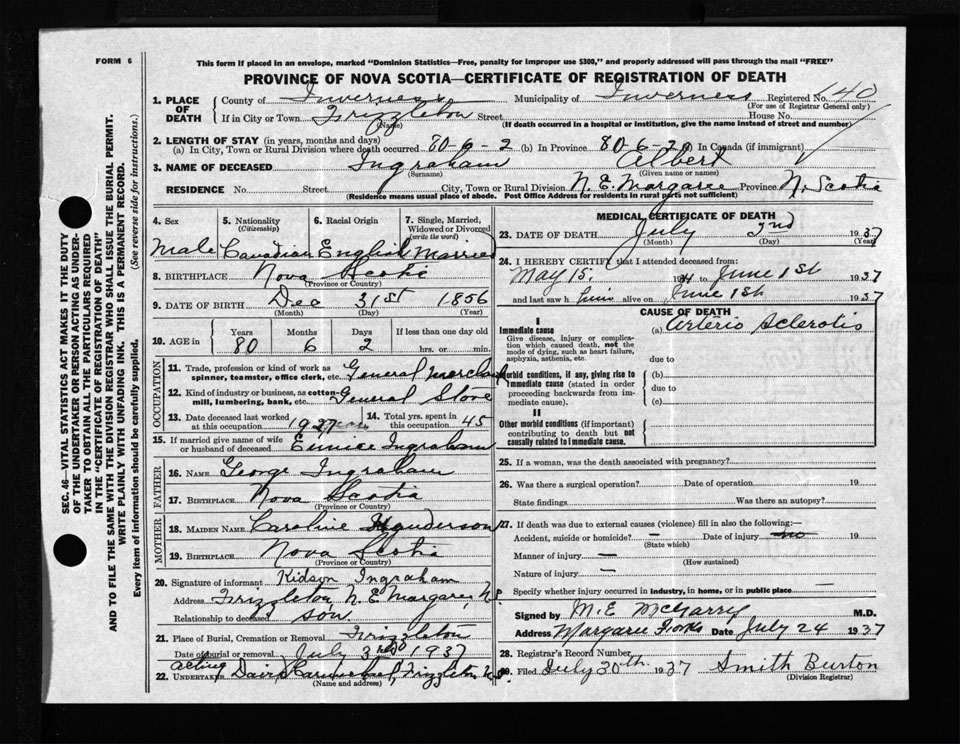 FORM 6
This form if placed in an envelope, marked "Dominion Statistics—Free, penalty for improper use $300," and properly addressed will pass through the mail "FREE"
PROVINCE OF NOVA SCOTIA—CERTIFICATE OF REGISTRATION OF DEATH
1. PLACE OF DEATH County of Inverness Municipality of Inverness Registered No. 40
(For use of Registrar General only)
If in City or Town Frizzleton Street House No.
(Name) (If death occurred in a hospital or institution, give the name instead of street and number)
2. LENGTH OF STAY (in years, months and days)
(a) In City, Town or Rural Division where death occurred 80-6-2 (b) In Province 80-6-2 (c) In Canada (if immigrant)
3. NAME OF DECEASED Ingraham Albert
(Surname) (Given name or names)
RESIDENCE No. Street City, Town or Rural Division N. E. Margaree Province N. Scotia
(Residence means usual place of abode. Post Office Address for residents in rural parts not sufficient)
SEC. 46—VITAL STATISTICS ACT MAKES IT THE DUTY
OF THE UNDERTAKER OR PERSON ACTING AS UNDER-
TAKER TO OBTAIN ALL THE PARTICULARS REQUIRED
IN THE "CERTIFICATE OF REGISTRATION OF DEATH"
AND TO FILE THE SAME WITH THE DIVISION REGISTRAR WHO SHALL ISSUE THE BURIAL PERMIT.
WRITE PLAINLY WITH UNFADING INK. THIS IS A PERMANENT RECORD.
Every item of information should be carefully supplied. (See reverse side for instructions.)
4. Sex 5. Nationality (Citizenship) 6. Racial Origin 7. Single, Married, Widowed or Divorced (write the word)
Male Canadian English Married
8. BIRTHPLACE Nova Scotia
(Province or Country)
9. DATE OF BIRTH Dec 31st 1856
(Month) (Day) (Year)
10. AGE in Years Months Days If less than one day old
80 6 2 hrs. or min.
OCCUPATION
11. Trade, profession or kind of work as spinner, teamster, office clerk, etc. General Merchant
12. Kind of industry or business, as cotton-mill, lumbering, bank, etc. General Store
13. Date deceased last worked at this occupation 1927 14. Total yrs. spent in this occupation 45
15. If married give name of wife or husband of deceased Eunice Ingraham
FATHER
16. NAME George Ingraham
17. BIRTHPLACE Nova Scotia
(Province or Country)
MOTHER
18. MAIDEN NAME Caroline Henderson
19. BIRTHPLACE Nova Scotia
(Province or Country)
20. Signature of informant Kidson Ingraham
Address Frizzleton, N. E. Margaree, N.S.
Relationship to deceased son.
21. Place of Burial, Cremation or Removal Frizzleton
Date of burial or removal July 3rd 1937
acting
22. UNDERTAKER David Carmichael, Frizzleton N.S.
(Name and address)
MEDICAL CERTIFICATE OF DEATH
23. DATE OF DEATH July 2nd 1937
(Month) (Day) (Year)
24. I HEREBY CERTIFY that I attended deceased from:
May 15, 1934 to June 1st 1937
and last saw him alive on June 1st 1937
CAUSE OF DEATH
I
Immediate cause (a) Arterio Sclerotis
Give disease, injury or complication which caused death, not the mode of dying, such as heart failure, asphyxia, asthenia, etc.
due to
Morbid conditions, if any, giving rise to immediate cause (stated in order proceeding backwards from immediate cause).
(b)
due to
(c)
II
Other morbid conditions (if important) contributing to death but not causally related to immediate cause.
25. If a woman, was the death associated with pregnancy?
26. Was there a surgical operation? Date of operation 19
State findings Was there an autopsy?
27. If death was due to external causes (violence) fill in also the following:—
Accident, suicide or homicide? — Date of injury no 19
(State which)
Manner of injury —
(How sustained)
Nature of injury —
Specify whether injury occurred in industry, in home, or in public place —
Signed by M. E. McGarry M.D.
Address Margaree Forks Date July 24 1937
28. Registrar's Record Number
29. Filed July 30th 1937 Smith Burton
(Division Registrar)